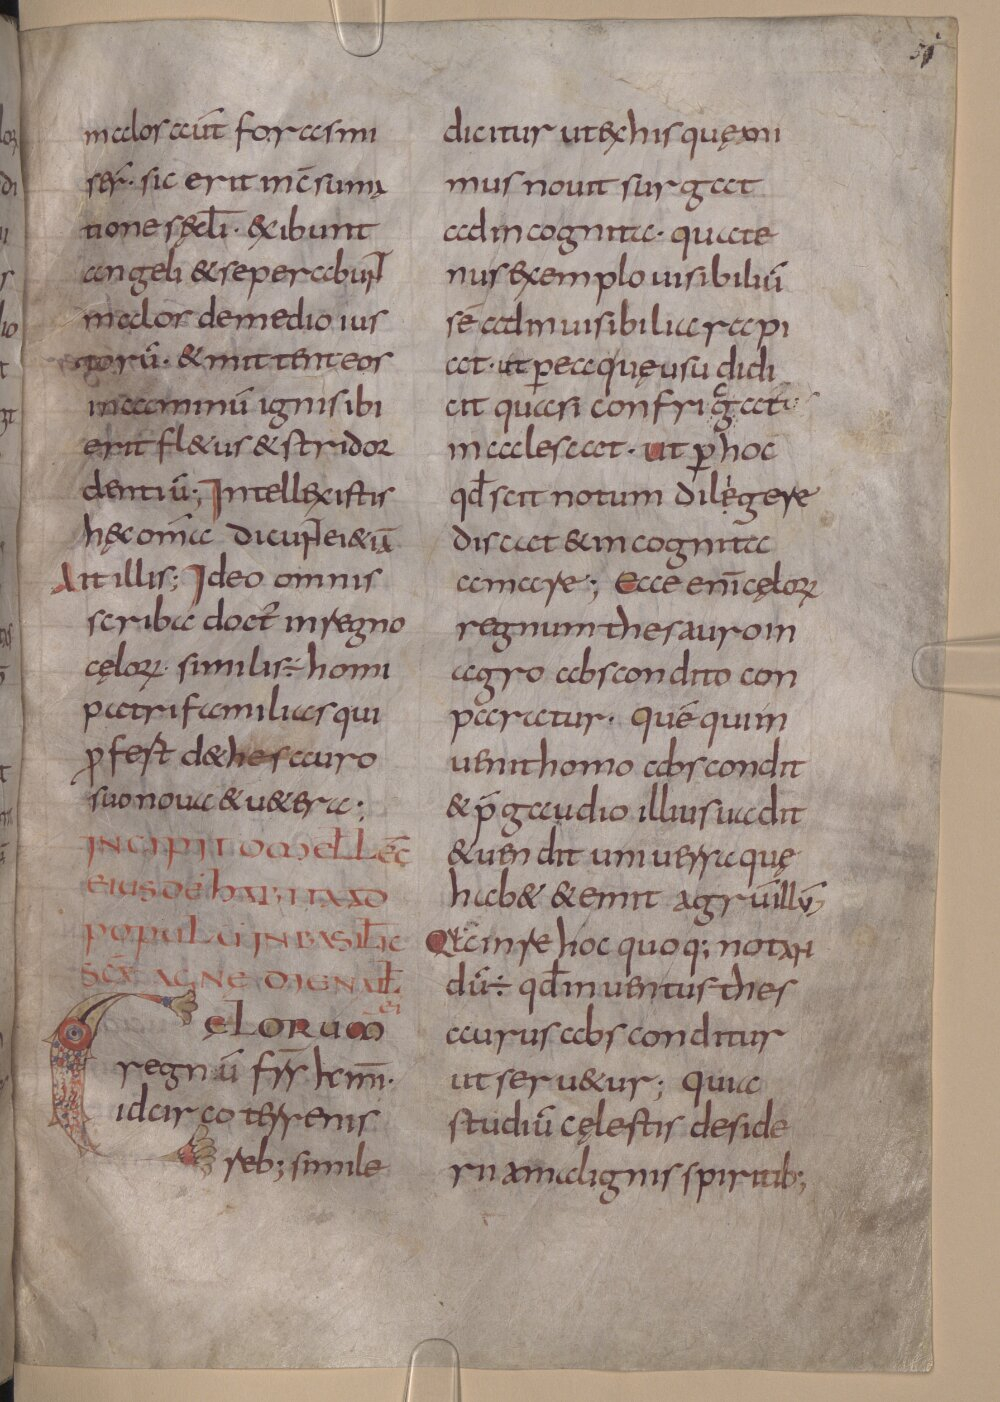 51
malos aūt foras mi
ser̄. sic erit in c̄sumą
tione sęcl̄i. & exibunt
angeli & separabun̄t
malos de medio ius
torū. & mittent eos
in caminū ignis ibi
erit fl&us & stridor
dentiū; Intellexistis
hęc om̄a dicun̄t ei &iā
Ait illis; Ideo omnis
scriba doct̄ in regno
cęloꝝ. similis ÷ homi
patri familias qui
ꝓfert de thesauro
suo noua & u&era;
INCIPIT OMEL LEC̄
EIUSDĒ HABITA AD
POPULŪ IN BASILICA
SC̄Ę AGNE DIE NATL̄
EI
CęLORUM
regnū fr̄r̄ kmī.
idcirco terrenis
reb; simile
dicitur ut ex his quę ani
mus nouit surgat
ad incognita. quate
nus exemplo uisibiliū
sē ad inuisibilia rapi
at. ut per ea quę usu didi
cit quasi confricat'
incalescat. ut ꝑ hoc
qd̄ scit notum diligere
discat & incognita
amare; Ecce enī cęloꝝ
regnum thesauro in
agro abscondito con
paratur. Quē qui in
uenit homo abscondit
& p̄ gaudio illius uadit
& uendit uniuersa quę
hab& & emit agrū illū
Qua in re hoc quoq; notan
dū ÷ qd̄ inuentus thes
aurus absconditur
ut seru&ur; Quia
studiū cęlestis deside
rii a malignis spiritib;